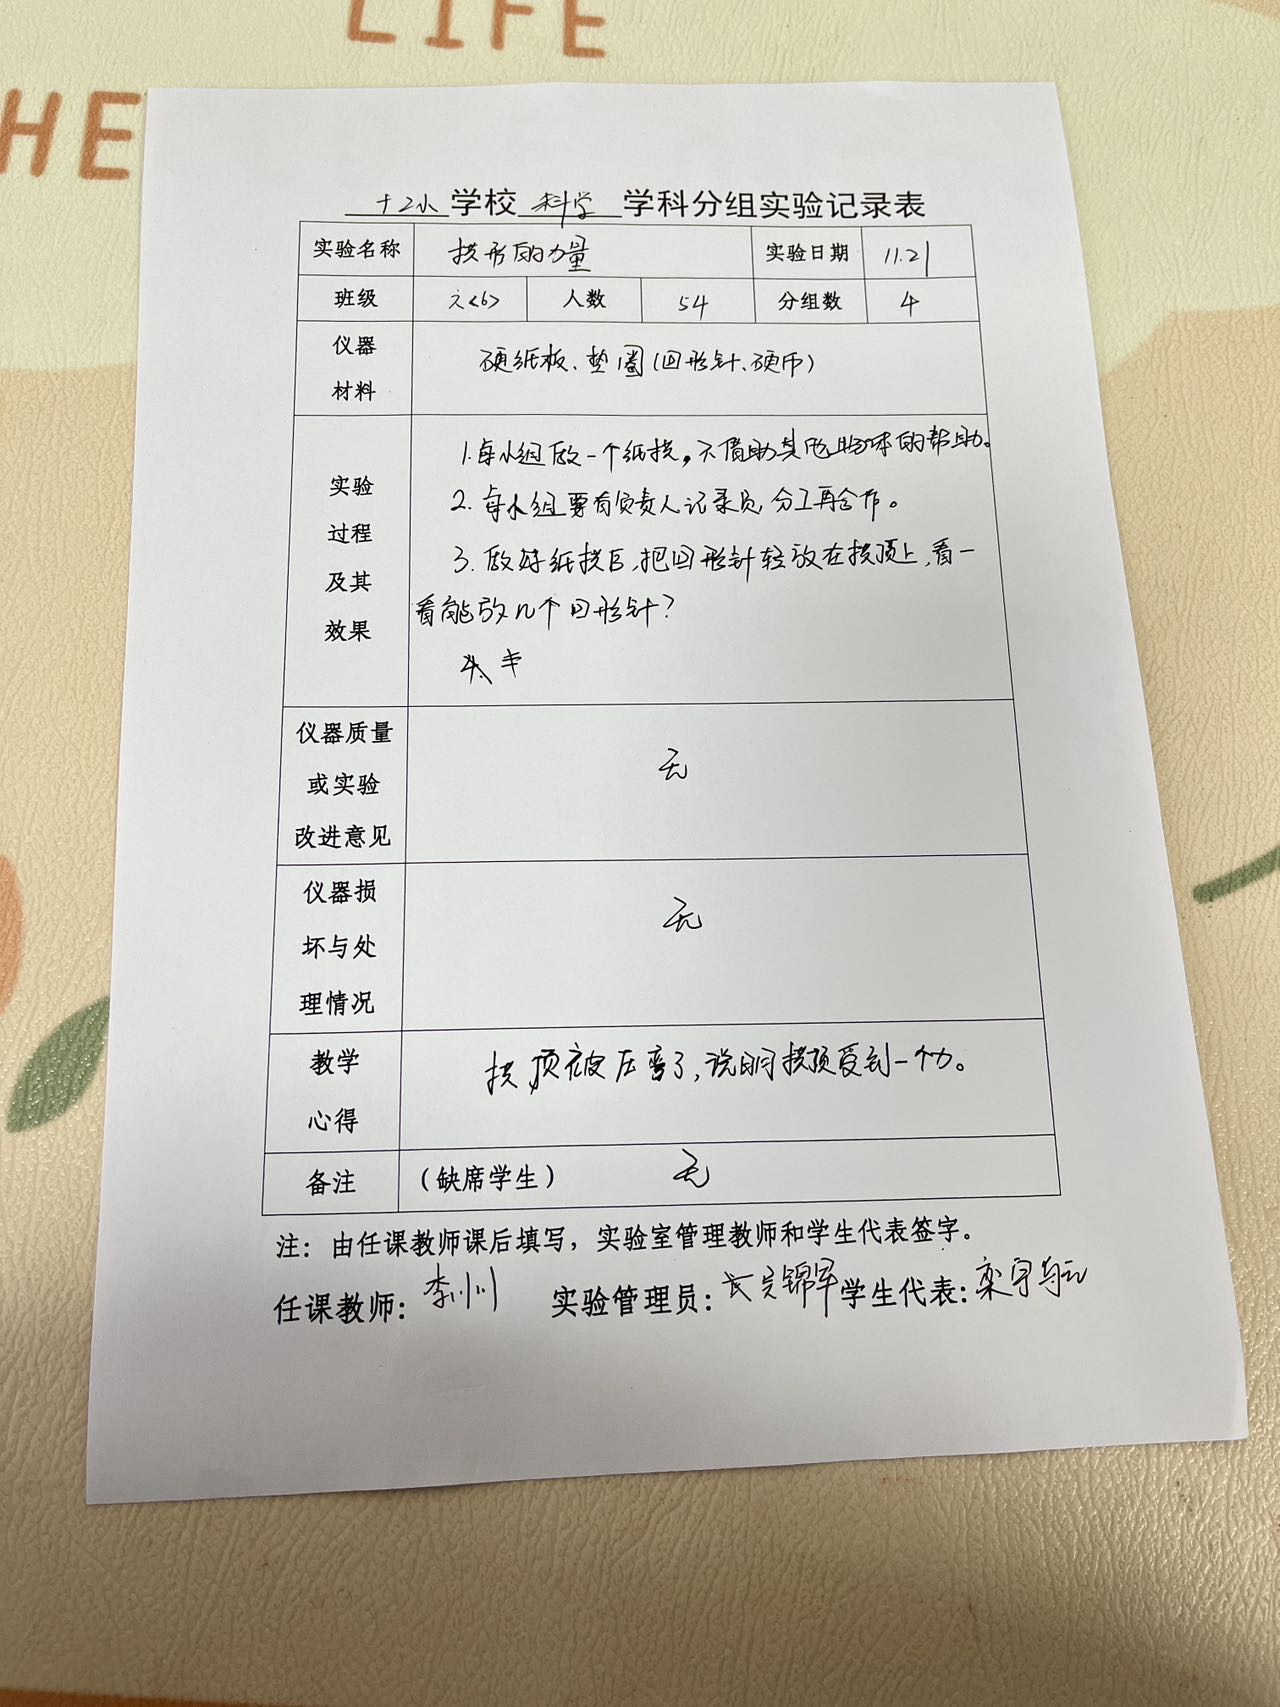 LIFE
HE
十二小学校科学学科分组实验记录表
实验名称 拱形的力量 实验日期 11.21
班级 六<6> 人数 54 分组数 4
仪器
材料
硬纸板、垫圈(回形针、硬币)
实验
过程
及其
效果
1.每小组做一个纸拱，不借助其他物体的帮助。
2.每小组要有负责人记录员,分工再合作。
3.做好纸拱后,把回形针轻放在拱顶上,看一
看能放几个回形针?
仪器质量
或实验
改进意见
无
仪器损
坏与处
理情况
无
教学
心得
拱顶被压弯了,说明拱顶受到一个力。
备注 （缺席学生） 无
注：由任课教师课后填写，实验室管理教师和学生代表签字。
任课教师：李川 实验管理员： 学生代表：